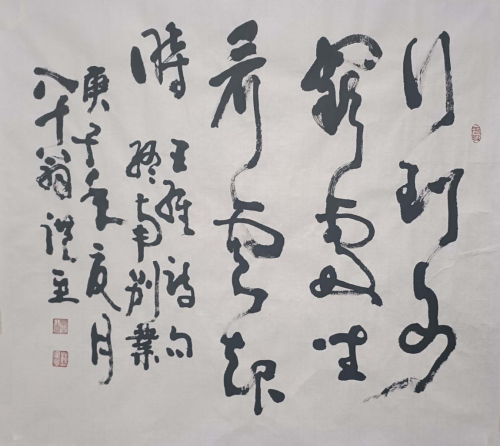 行到水
窮處坐
看雲起
時
王維詩句
終南別業
庚子年夏月
八十翁